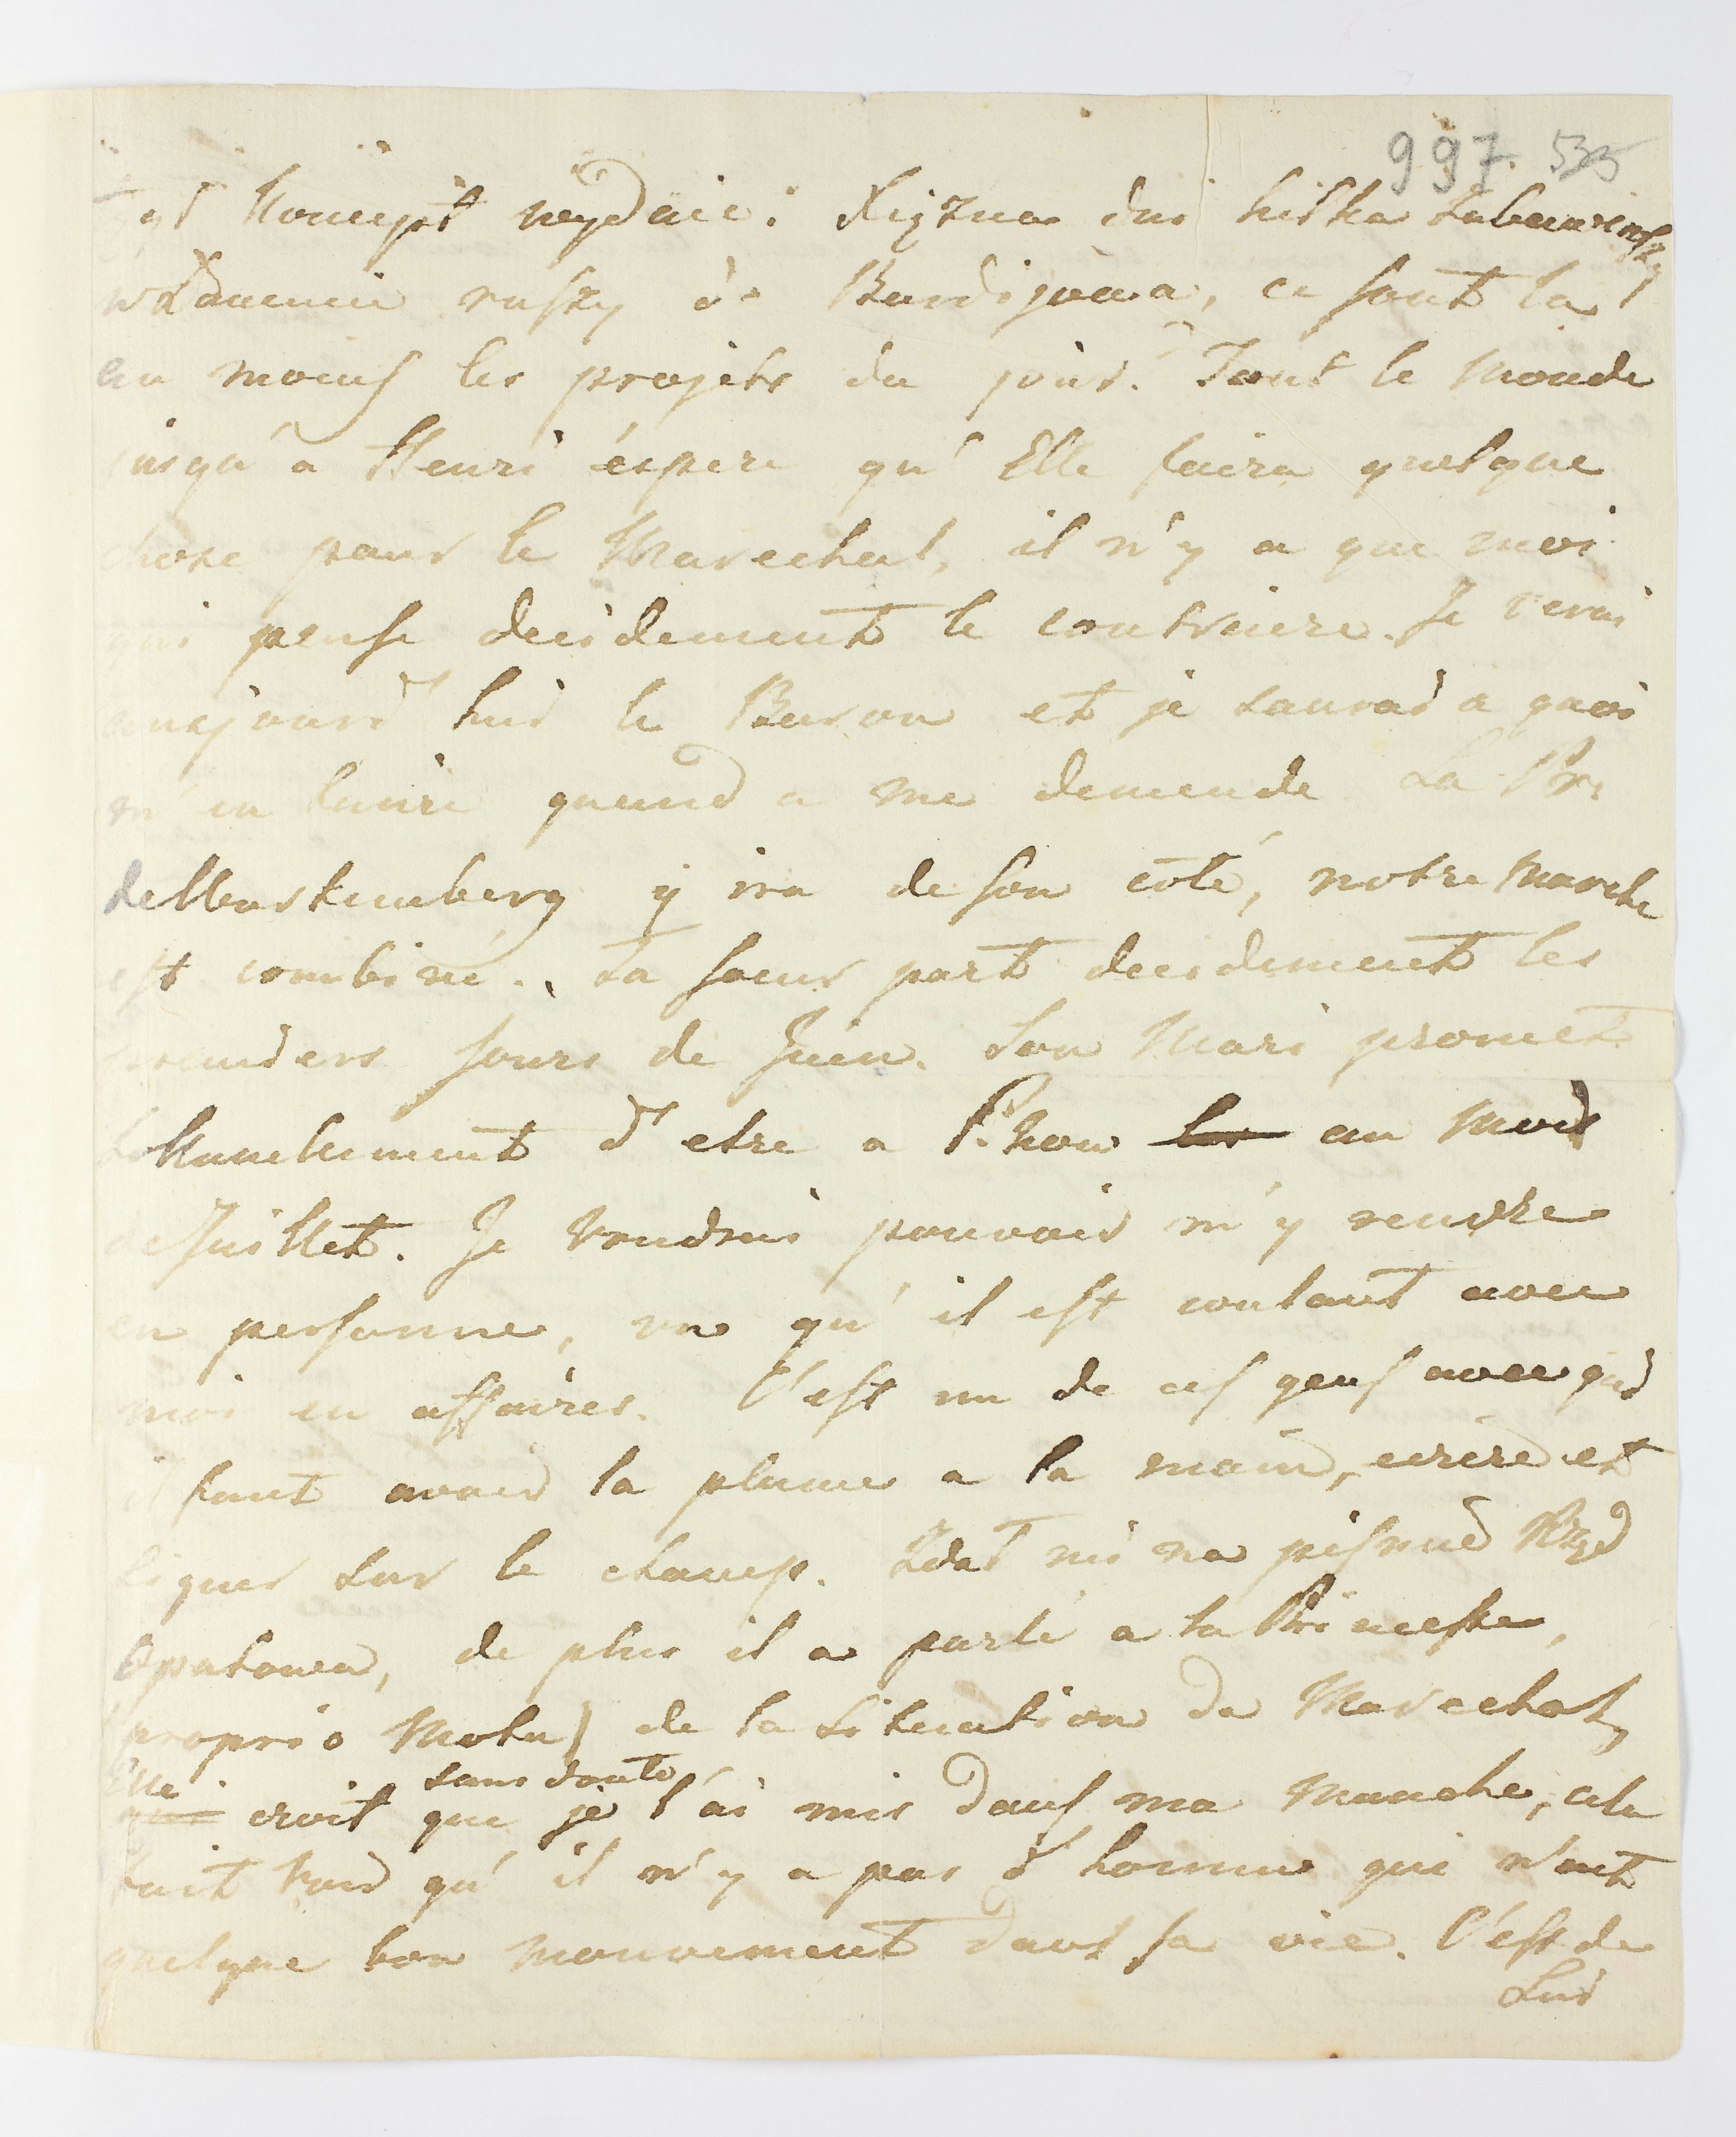 997. 535
Koncept wydaie: Xięzna dni kilka zabawiwszy
ruszy do Bardijowa, ce sont la
au moins les projets du jour. Tout le Monde
jusqu'a Henri éspere qu' Elle faira quelque
chose pour le Marechal, il n'y a que moi
qui pense decidement le contraire. Je verai
aujourd'hui le Baron et je saurai a quoi
m'en tenir quand a ma demande La Pr:
de Wurtemberg y ira de son coté, notre Marche
est combiné. Sa soeur part decidement les
premiers Jours de Juin. Son Mari promet
d'etre a P: how au Mois
de Juillet. Je voudrai pouvoir m'y rendre
en personne, vu qu' il est coulant avec
moi en affaires. C'est un de ces gens avec qui
il faut avoir la plume a la main, ecrire et
signer sur le champ. Zdał mi na pismie Rząd
Opatowa, de plus il a parlé a la Princesse,
(proprio Motu) de la Situation du Marechal,
Elle croit sans doute que je l'ai mis dans ma Manche, cela
fait voir qu' il n'y a pas d'homme qui n'ait
quelque bon Mouvement dans sa vie. C'est de
Lui